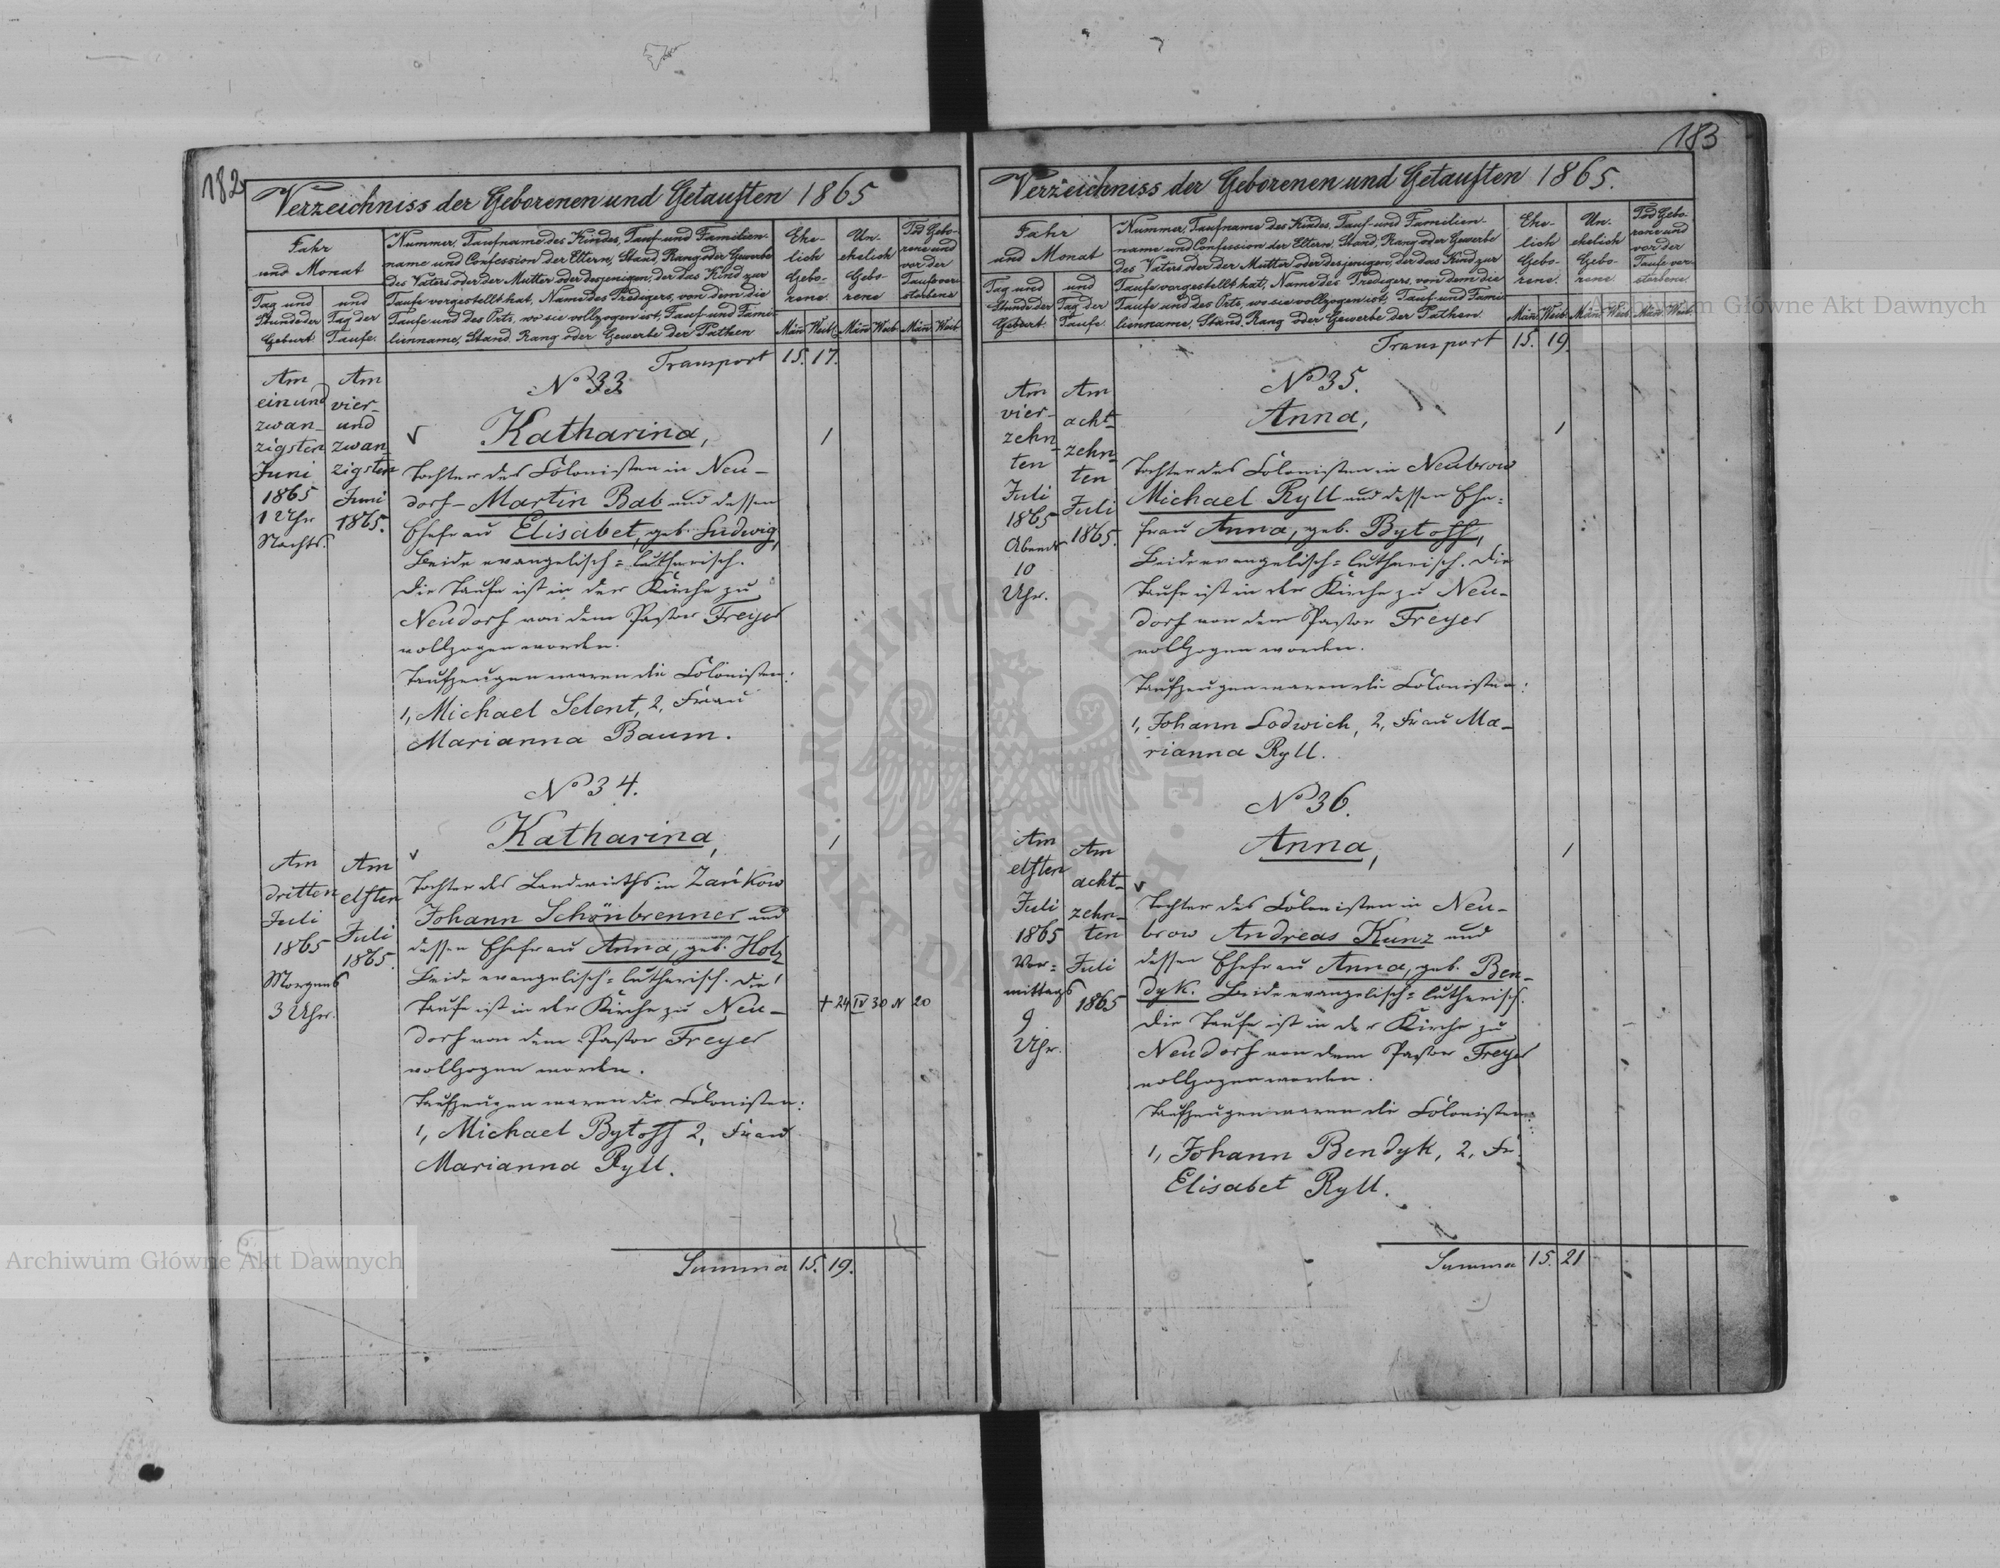 182
Verzeichniss der Geborenen und Getauften 1865
Jahr
und Monat
Tag und
Stunde der
Geburt.
und
Tag der
Taufe.
Nummer, Taufname des Kindes, Tauf- und Familien-
name und Confession der Eltern, Stand, Rang oder Gewerbe
des Vaters oder der Mutter oder desjenigen, der das Kind zur
Taufe vorgestellt hat, Name des Predigers, von dem die
Taufe und des Orts, wo sie vollzogen ist, Tauf- und Fami-
lienname, Stand, Rang oder Gewerbe der Pathen
Ehe-
lich
Gebo-
rene.
Un-
ehelich
Gebo
rene
Tod Gebo-
rene und
vor der
Taufe ver-
storbene
Män Weib. Män Weib. Män Weib.
Transport 15. 17.
Am
einund
zwan-
zigsten
Juni
1865
1 Uhr
Nachts.
Am
vier-
und
zwan-
zigsten
Juni
1865.
No 33.
Katharina, 1
Tochter des Colonisten in Neu-
dorf - Martin Bab und dessen
Ehefrau Elisabet, geb. Ludwig,
Beide evangelisch=lutherisch.
Die Taufe ist in der Kirche zu
Neudorf von dem Pastor Freyer
vollzogen worden.
Taufzeugen waren die Colonisten:
1, Michael Selent, 2, Frau
Marianna Baum.
No 34.
Katharina, 1
Am
dritten
Juli
1865
Morgens
3 Uhr.
Am
elften
Juli
1865.
Tochter des Landwirths in Zańkow
Johann Schönbrenner und
dessen Ehefrau Anna, geb. Holz
Beide evangelisch=lutherisch. Die
Taufe ist in der Kirche zu Neu-
dorf von dem Pastor Freyer
vollzogen worden.
† 24 IV 30 N 20
Taufzeugen waren die Colonisten:
1, Michael Bytoff 2, Frau
Marianna Ryll.
Summa 15. 19.
183
Verzeichniss der Geborenen und Getauften 1865.
Jahr
und Monat
Tag und
Stunde der
Geburt.
und
Tag der
Taufe.
Nummer, Taufname des Kindes, Tauf- und Familien-
name und Confession der Eltern, Stand, Rang oder Gewerbe
des Vaters oder der Mutter oder desjenigen, der das Kind zur
Taufe vorgestellt hat, Name des Predigers, von dem die
Taufe und des Orts, wo sie vollzogen ist, Tauf- und Fami-
lienname, Stand, Rang oder Gewerbe der Pathen
Ehe-
lich
Gebo-
rene.
Un-
ehelich
Gebo-
rene.
Tod Gebo-
rene und
vor der
Taufe ver-
storbene.
Män Weib. Män Weib. Män Weib.
Transport 15. 19.
Am
vier-
zehn
ten
Juli
1865
Abends
10
Uhr.
Am
acht-
zehn-
ten
Juli
1865.
No 35.
Anna, 1
Tochter des Colonisten in Neubrow
Michael Ryll und dessen Ehe=
frau Anna, geb. Bytoff,
Beide evangelisch=lutherisch. Die
Taufe ist in der Kirche zu Neu-
dorf von dem Pastor Freyer
vollzogen worden.
Taufzeugen waren die Colonisten:
1, Johann Lodwich, 2, Frau Ma-
rianna Ryll.
No 36.
Anna, 1
Am
elften
Juli
1865
Vor=
mittags
9
Uhr.
Am
acht-
zehn-
ten
Juli
1865
Tochter des Colonisten in Neu-
brow Andreas Kunz und
dessen Ehefrau Anna, geb. Ben-
dyk. Beide evangelisch=lutherisch.
Die Taufe ist in der Kirche zu
Neudorf von dem Pastor Freyer
vollzogen worden.
Taufzeugen waren die Colonisten:
1, Johann Bendyk, 2, Fr.
Elisabet Ryll.
Summa 15. 21
Archiwum Główne Akt Dawnych
Archiwum Główne Akt Dawnych
ARCHIWUM GŁÓWNE AKT DAWNYCH